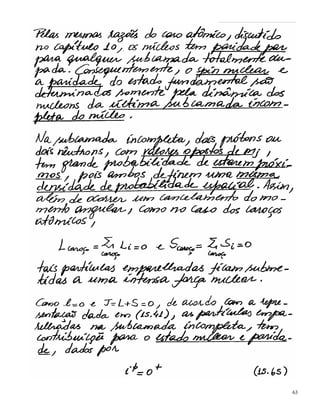 Pelas mesmas razões do caso atômico, discutido
no capítulo 10, os núcleos tem paridade par
para qualquer subcamada totalmente ocu-
pada. Consequentemente, o spin nuclear e
a paridade do estado fundamental são
determinados somente pela dinâmica dos
nucleons da última subcamada incom-
pleta do núcleo.
Na subcamada incompleta, dois prótons ou
dois nêutrons, com valores opostos de mj,
tem grande probabilidade de estarem próxi-
mos, pois ambos definem uma mesma
densidade de probabilidade espacial. Assim,
além de ocorrer um cancelamento do mo-
mento angular, como no caso dos caroços
atômicos,
L caroço = Σ Li = 0 e S caroço = Σ Si = 0
caroço caroço
tais partículas emparelhadas ficam subme-
tidas a uma intensa força nuclear.
Como l=0 e J=L+S=0, de acordo com a repre-
sentação dada em (15.41), as partículas empa-
relhadas na subcamada incompleta, tem,
contribuições para o estado nuclear e parida-
de, dados por
i^p = 0^+ (15.65)
63